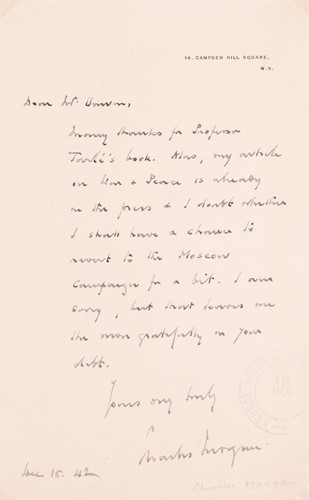 16, CAMPDEN HILL SQUARE,
W.8.
Dear Mr Unwin,
Many thanks for Professor
Tarlé's book. Alas, my article
on War & Peace is already
in the press & I doubt whether
I shall have a chance to
revert to the Moscow
Campaign for a bit. I am
sorry, but that leaves me
the more gratefully in your
debt.
Yours very truly
Charles Morgan
Dec 15. 42
Charles Morgan